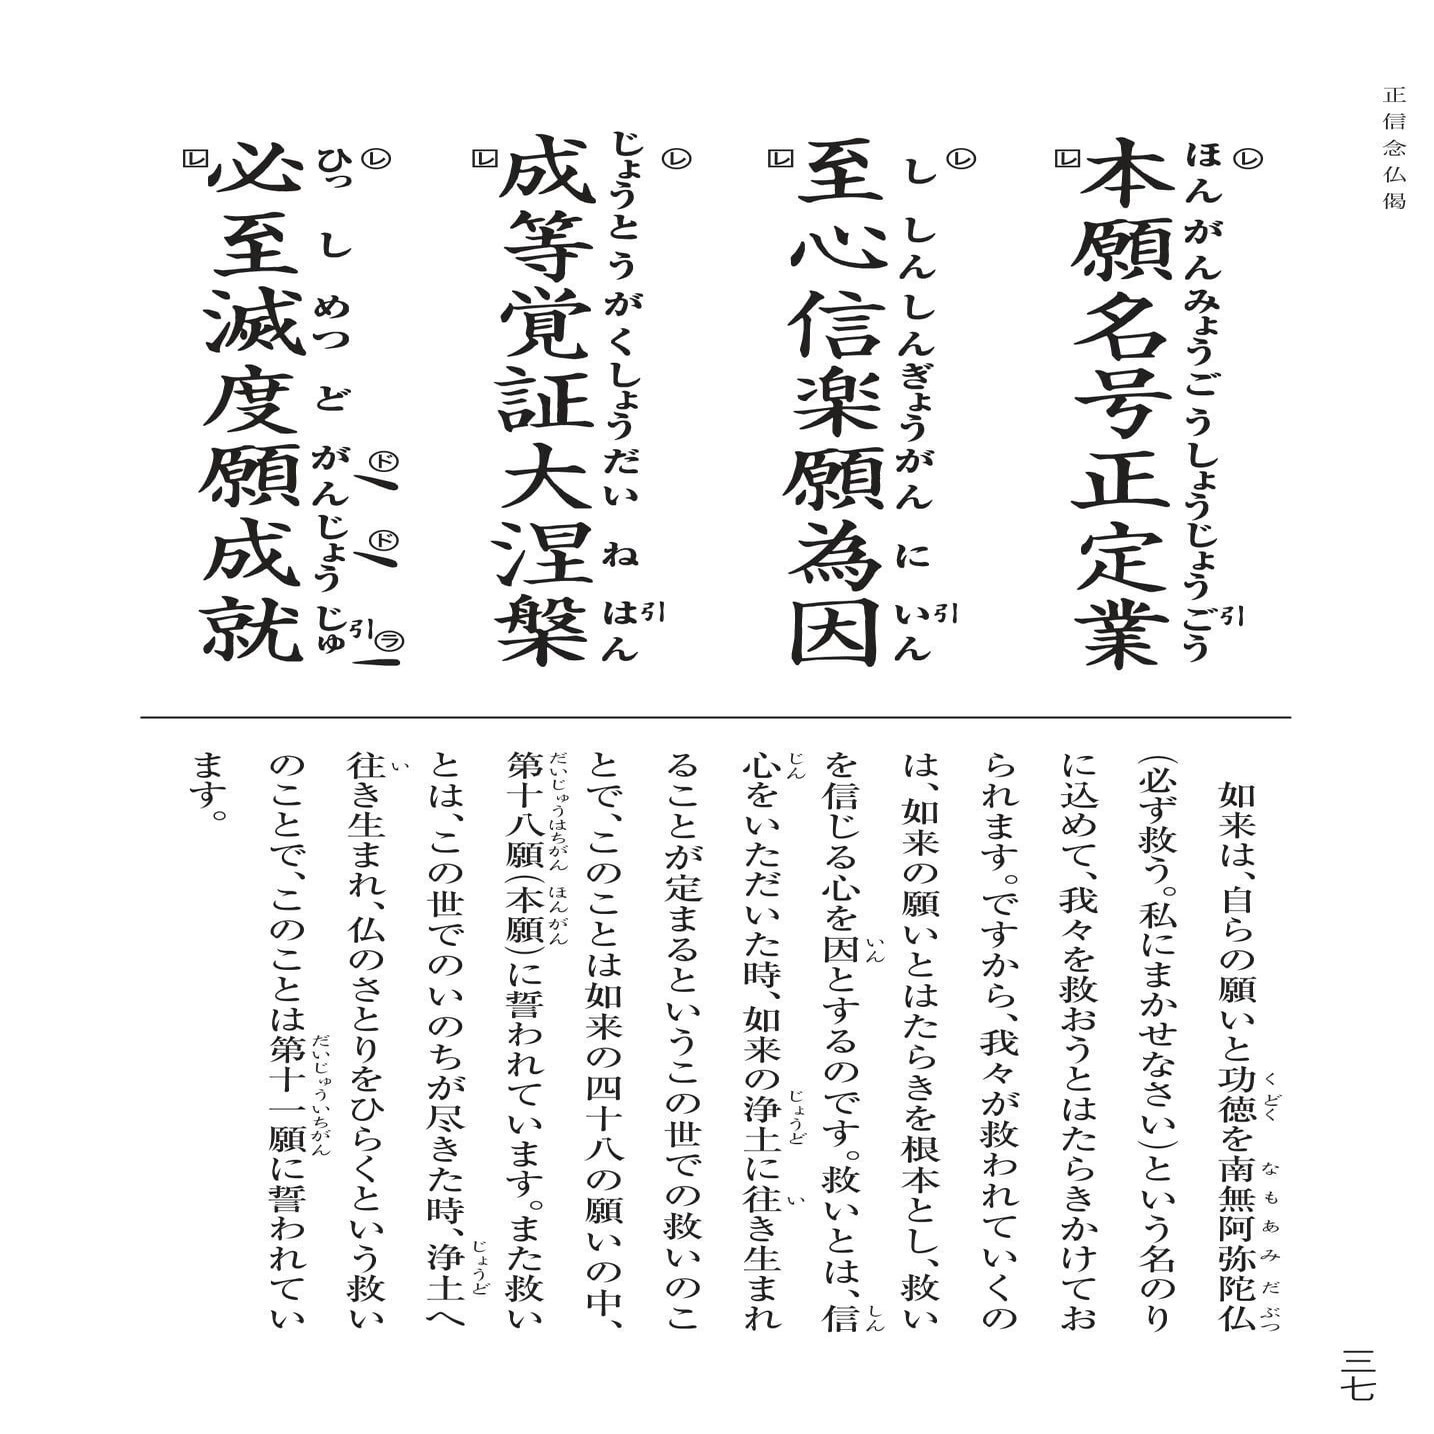 正信念仏偈
㋹ ほんがんみょうごうしょうじょうごう 引
レ 本願名号正定業
㋹ ししんしんぎょうがんにいん 引
レ 至心信楽願為因
㋹ じょうとうがくしょうだいねはん 引
レ 成等覚証大涅槃
㋹ ㋣゙ ㋣゙ 引 ㋶
ひっしめつどがんじょうじゅ
レ 必至滅度願成就
くどく なもあみだぶつ
如来は、自らの願いと功徳を南無阿弥陀仏
（必ず救う。私にまかせなさい）という名のり
に込めて、我々を救おうとはたらきかけてお
られます。ですから、我々が救われていくの
は、如来の願いとはたらきを根本とし、救い
いん しん
を信じる心を因とするのです。救いとは、信
じん じょうど い
心をいただいた時、如来の浄土に往き生まれ
ることが定まるというこの世での救いのこ
とで、このことは如来の四十八の願いの中、
だいじゅうはちがん ほんがん
第十八願（本願）に誓われています。また救い
じょうど
とは、この世でのいのちが尽きた時、浄土へ
い
往き生まれ、仏のさとりをひらくという救い
だいじゅういちがん
のことで、このことは第十一願に誓われてい
ます。
三七